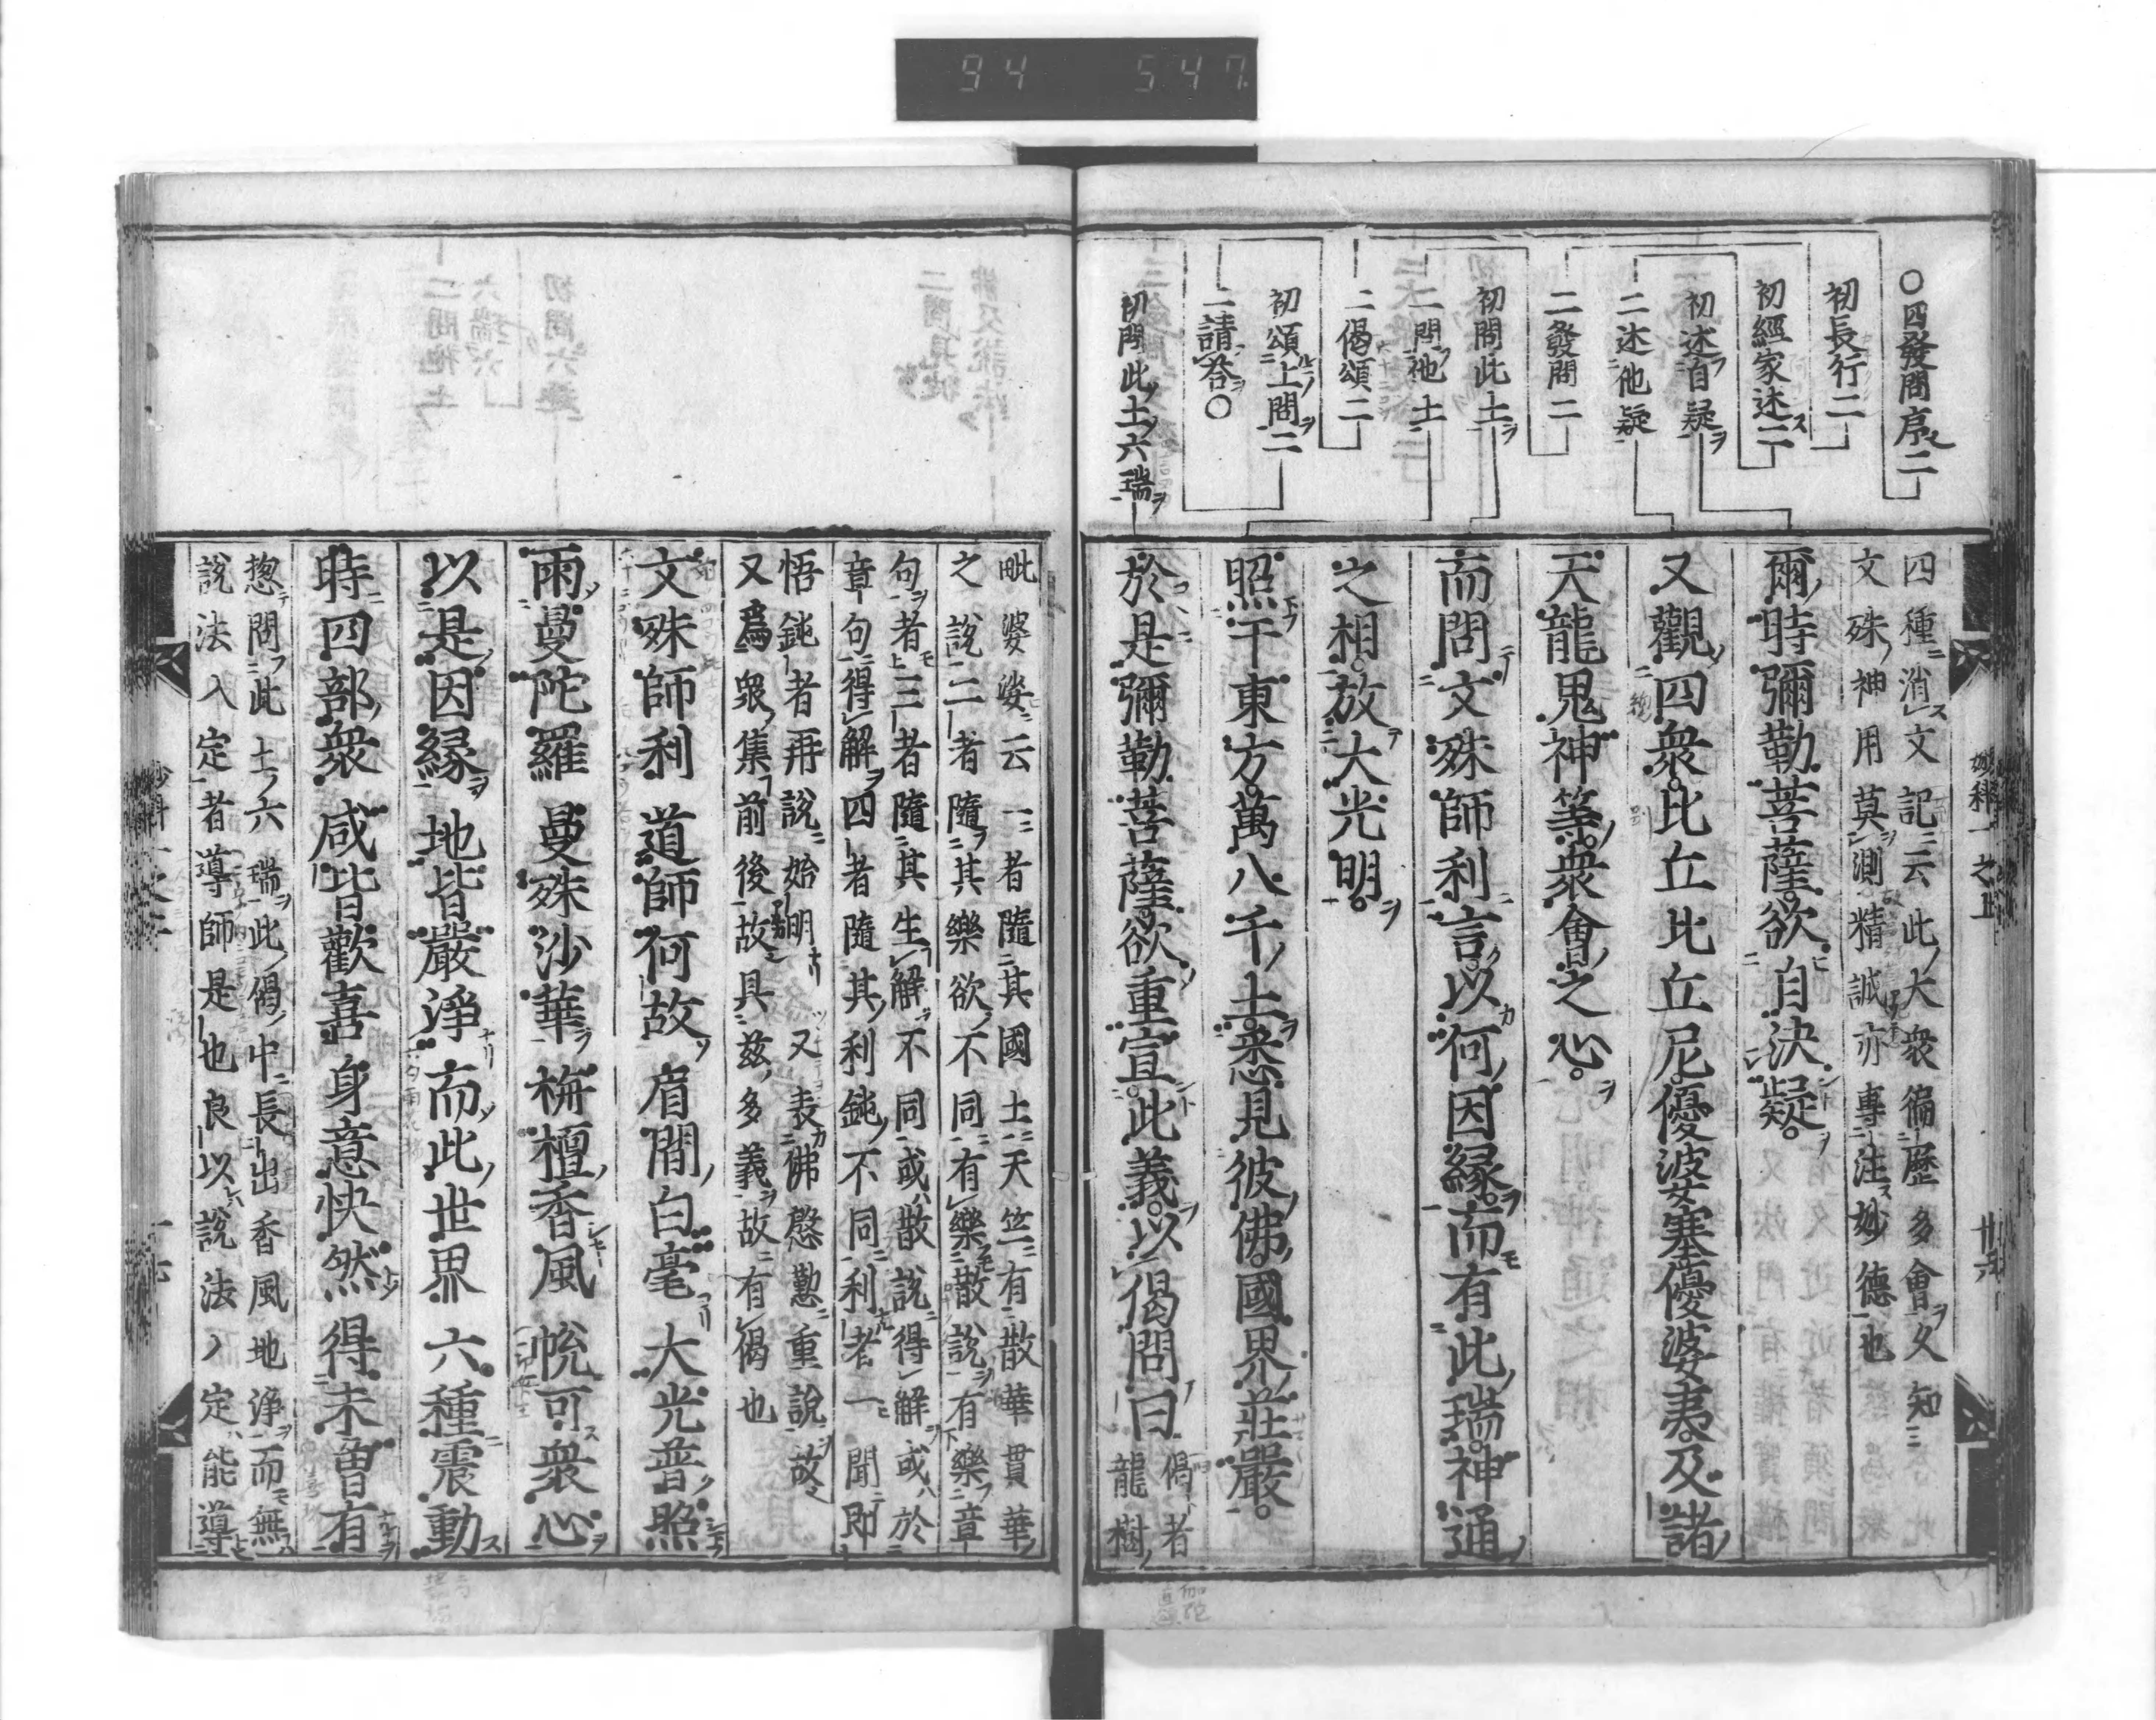 94 547
○四發問序二
初長行二
初經家述二
初述自疑
二述他疑
二發問二
初問此土
二問他土
二偈頌二
初頌上問二
二請答○
初問此土六瑞
四種消文記云此大衆徧歷多會久知
文殊神用莫測精誠亦專注妙德也
爾時彌勒菩薩欲自決疑
又觀四衆比丘比丘尼優婆塞優婆夷及諸
天龍鬼神等衆會之心
而問文殊師利言以何因緣而有此瑞神通
之相放大光明
照于東方萬八千土悉見彼佛國界莊嚴
於是彌勒菩薩欲重宣此義以偈問曰
偈者
龍樹
毗婆娑云一者隨其國土天竺有散華貫華
之說二者隨其樂欲不同有樂散說有樂章
句者三者隨其生解不同或散說得解或於
章句得解四者隨其利鈍不同利者一聞即
悟鈍者再說始明又表佛慇懃重說故
又爲衆集前後故具茲多義故有偈也
文殊師利 道師何故 眉間白毫 大光普照
雨曼陀羅 曼殊沙華 栴檀香風 悅可衆心
以是因緣 地皆嚴淨 而此世界 六種震動
時四部衆 咸皆歡喜 身意快然 得未曾有
惣問此土六瑞此偈中長出香風地淨而無
說法入定者導師是也良以說法入定能導
妙科一之上
廿六